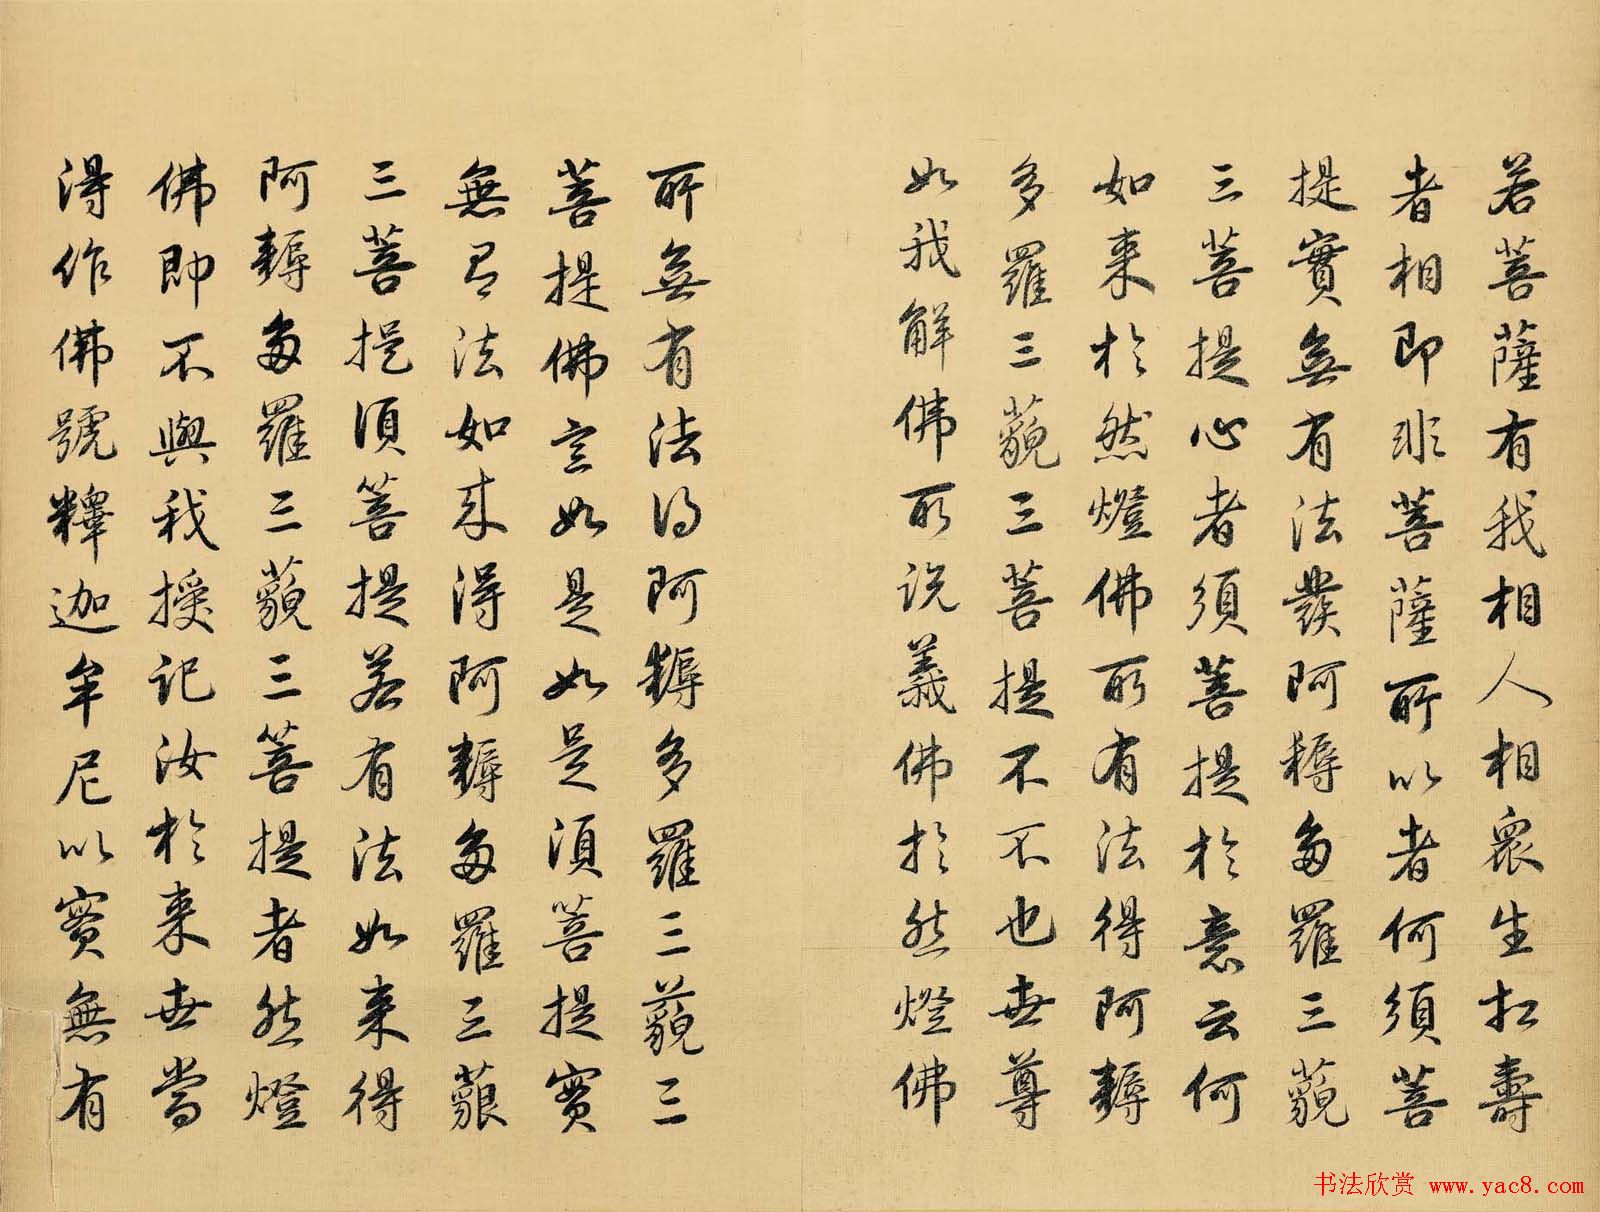 若菩薩有我相人相眾生相壽
者相即非菩薩所以者何須菩
提實無有法發阿耨多羅三藐
三菩提心者須菩提於意云何
如来於然燈佛所有法得阿耨
多羅三藐三菩提不不也世尊
如我解佛所說義佛於然燈佛
所無有法得阿耨多羅三藐三
菩提佛言如是如是須菩提實
無有法如来得阿耨多羅三藐
三菩提須菩提若有法如来得
阿耨多羅三藐三菩提者然燈
佛即不與我授記汝於来世當
得作佛號釋迦牟尼以實無有
书法欣赏 www.yac8.com